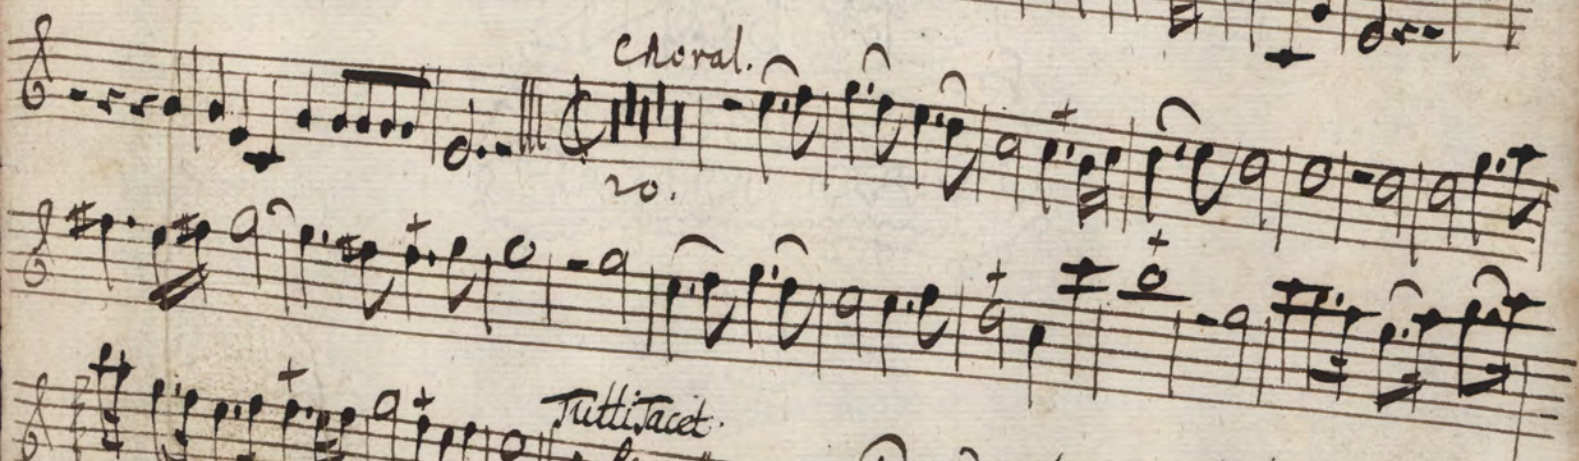 Choral.
20.
Tutti Tacet.